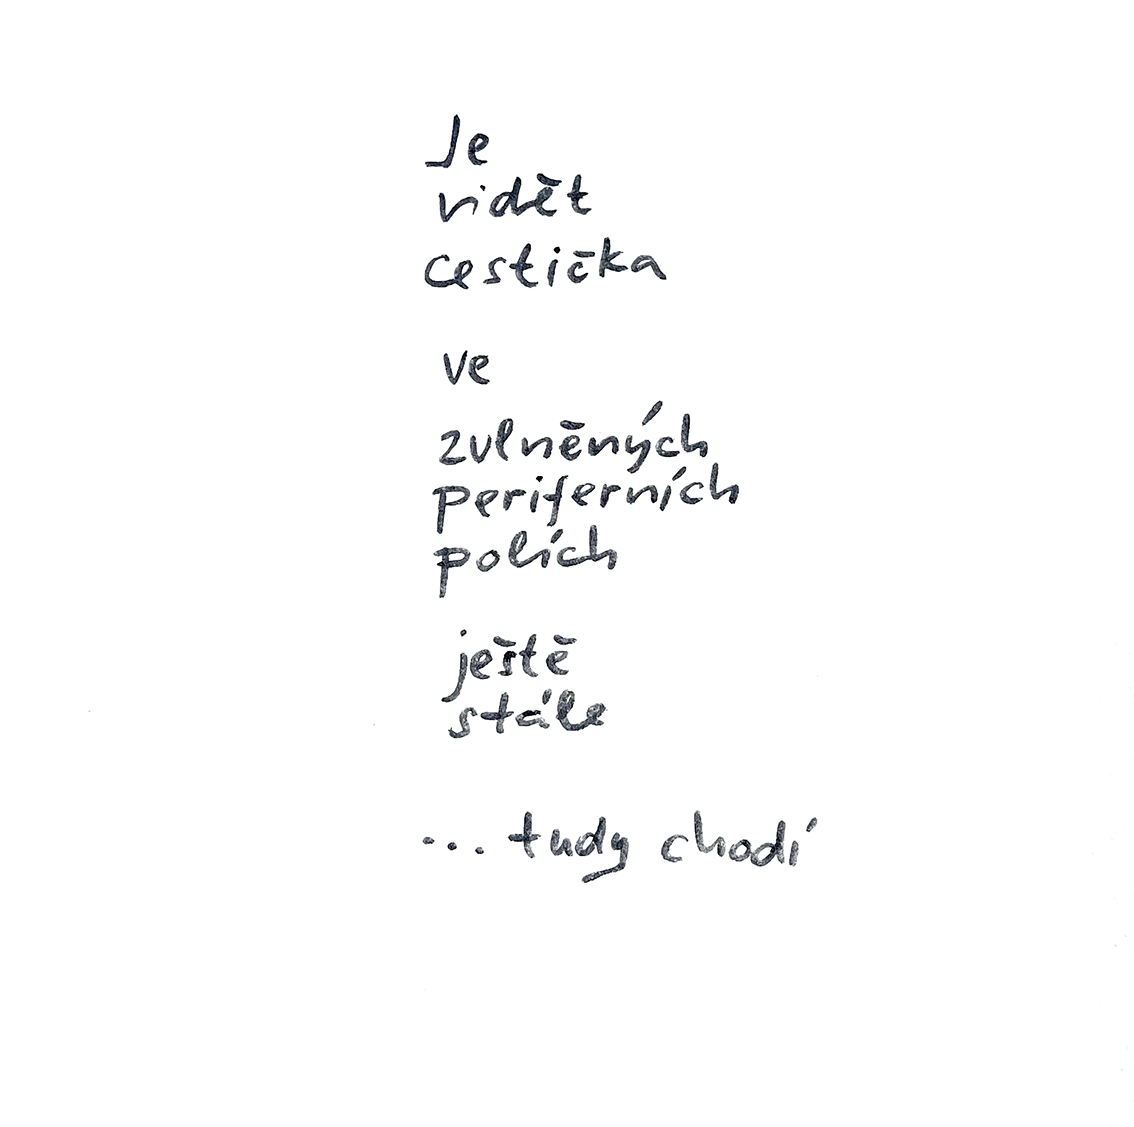 Je
vidět
cestička
ve
zvlněných
periferních
polích
ještě
stále
... tudy chodí